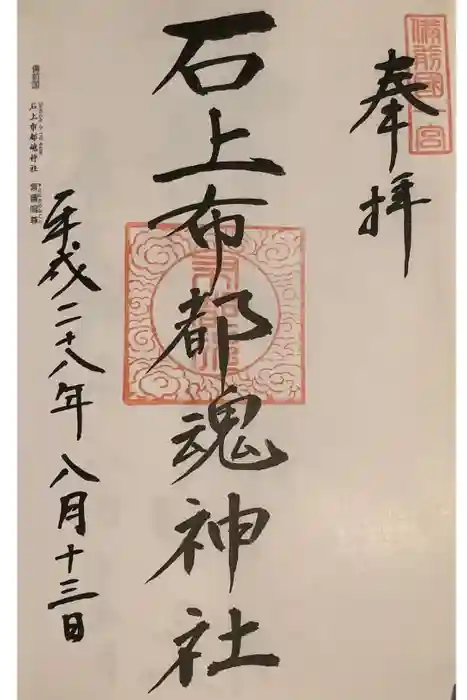 備前國一宮
奉拝
石上布都魂神社
平成二十八年八月十三日
備前国
石上布都魂神社